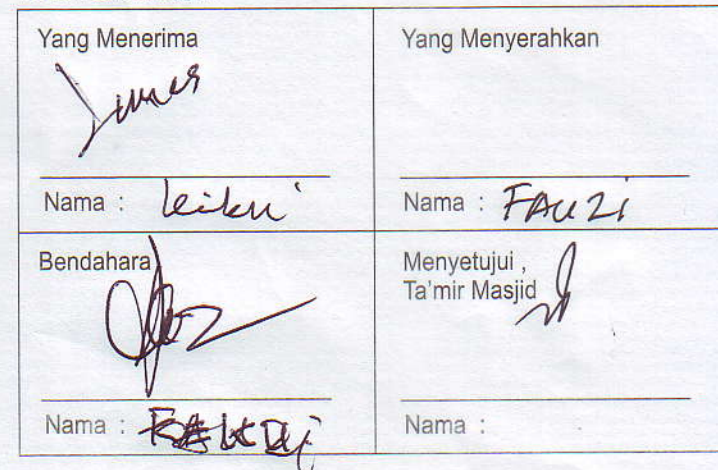 Yang Menerima
Yang Menyerahkan
Nama :
Nama : FAUZI
Bendahara
Menyetujui ,
Ta'mir Masjid
Nama :
Nama :